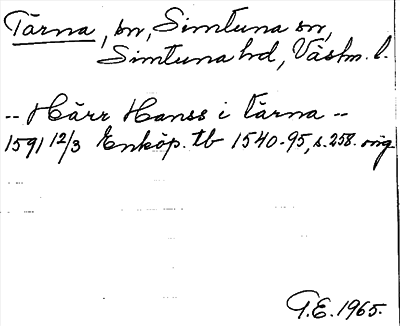 Tärna, sn, Simtuna sn,
Simtuna hd, Västm. l.
-- Härr Hanss i tärna --
1591 12/3 Enköp. tb 1540-95, s. 258. orig
G.E. 1965.